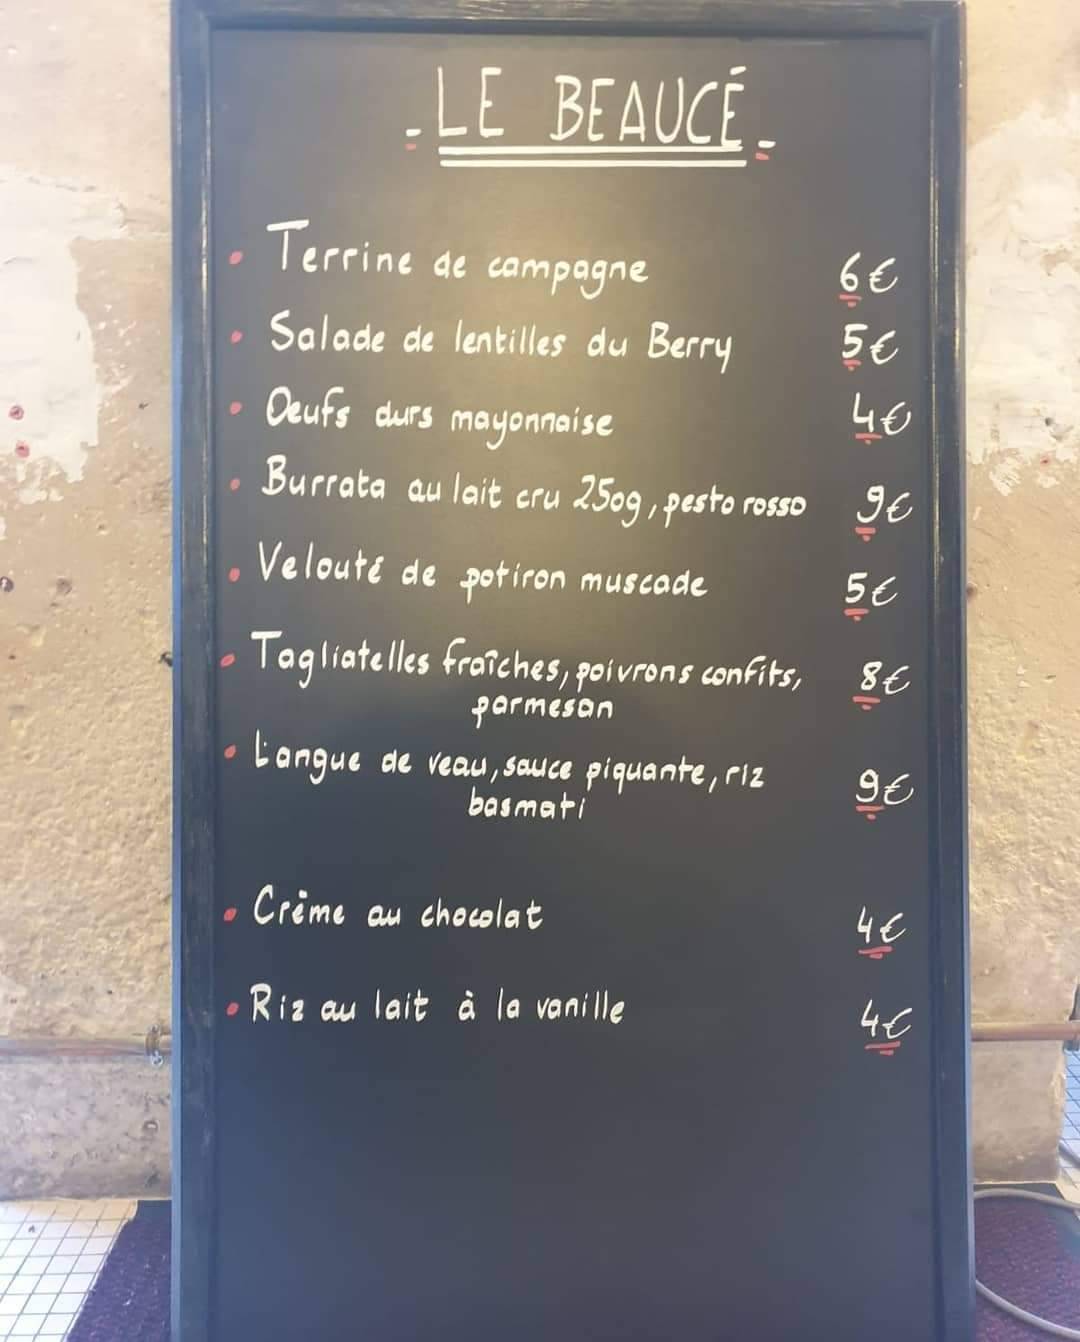 - LE BEAUCÉ -
• Terrine de campagne 6€
• Salade de lentilles du Berry 5€
• Oeufs durs mayonnaise 4€
• Burrata au lait cru 250g, pesto rosso 9€
• Velouté de potiron muscade 5€
• Tagliatelles fraîches, poivrons confits, 8€
parmesan
• Langue de veau, sauce piquante, riz 9€
basmati
• Crème au chocolat 4€
• Riz au lait à la vanille 4€